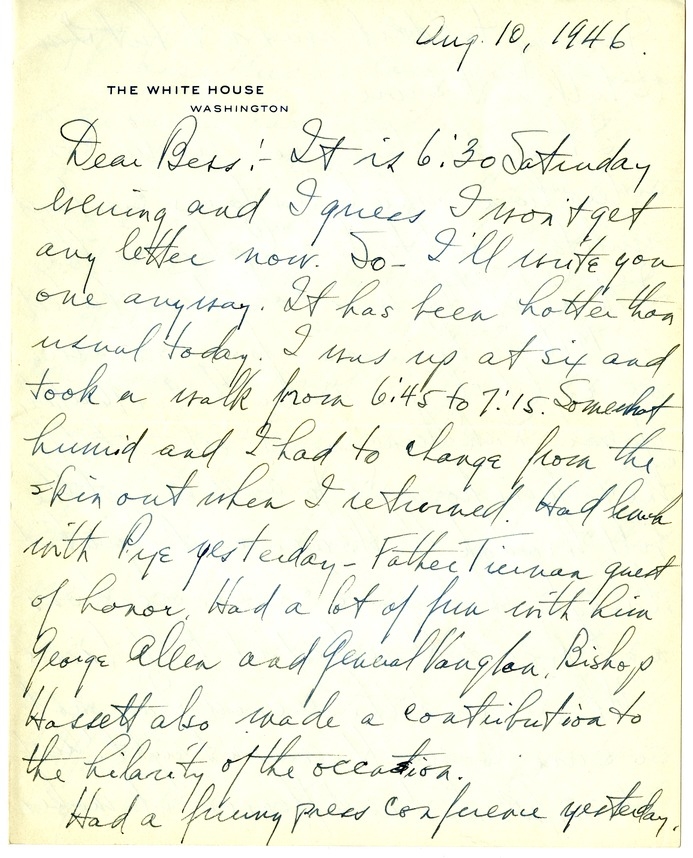 Aug. 10, 1946.
THE WHITE HOUSE
WASHINGTON
Dear Bess:- It is 6:30 Saturday
evening and I guess I won't get
any letter now. So- I'll write you
one anyway. It has been hotter than
usual today. I was up at six and
took a walk from 6:45 to 7:15. Somewhat
humid and I had to change from the
skin out when I returned. Had lunch
with Pye yesterday - Father Tiernan guest
of honor. Had a lot of fun with him
George Allen and General Vaughan. Bishop
Hassett also made a contribution to
the hilarity of the occasion.
Had a funny press conference yesterday.